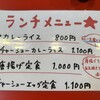 ランチメニュー★
カレーライス 800円
チャーシューカレーライス 1,100円
唐揚げ定食 1,000円
チャーシューエッグ定食 1,100円